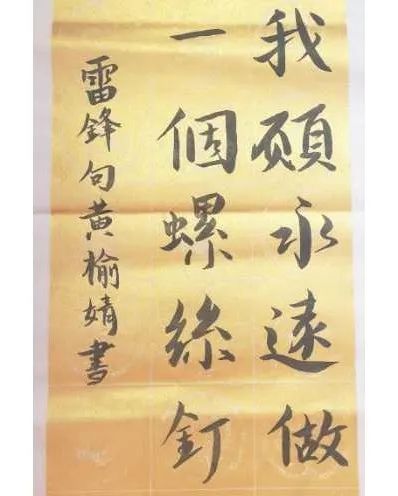 我願永遠做
一個螺絲釘
雷鋒句黄榆婧書